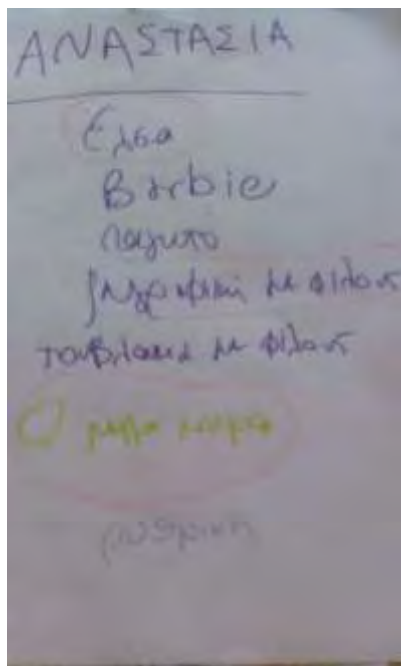 ΑΝΑΣΤΑΣΙΑ
Ελσα
Barbie
παγωτο
ζωγραφική με φίλους
τουβλακια με φίλους
ρυθμική